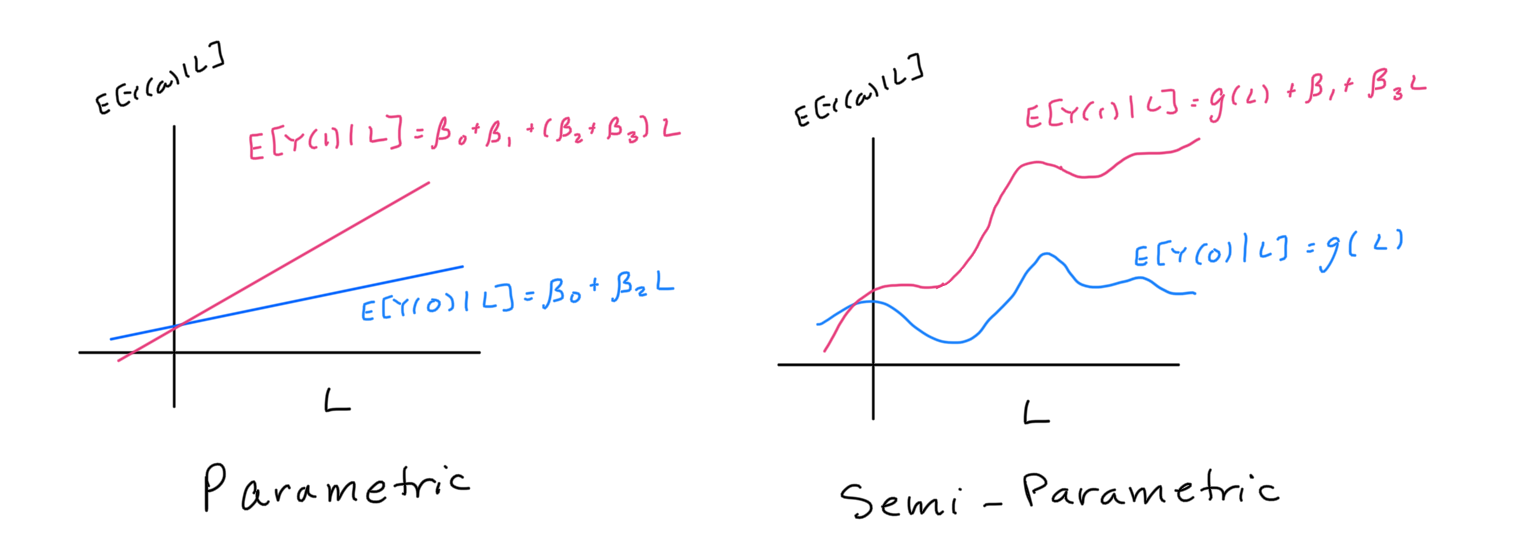 E[Y(a)|L]
E[Y(1)|L] = β₀ + β₁ + (β₂ + β₃) L
E[Y(0)|L] = β₀ + β₂ L
L
Parametric
E[Y(a)|L]
E[Y(1)|L] = g(L) + β₁ + β₃ L
E[Y(0)|L] = g(L)
L
Semi-Parametric